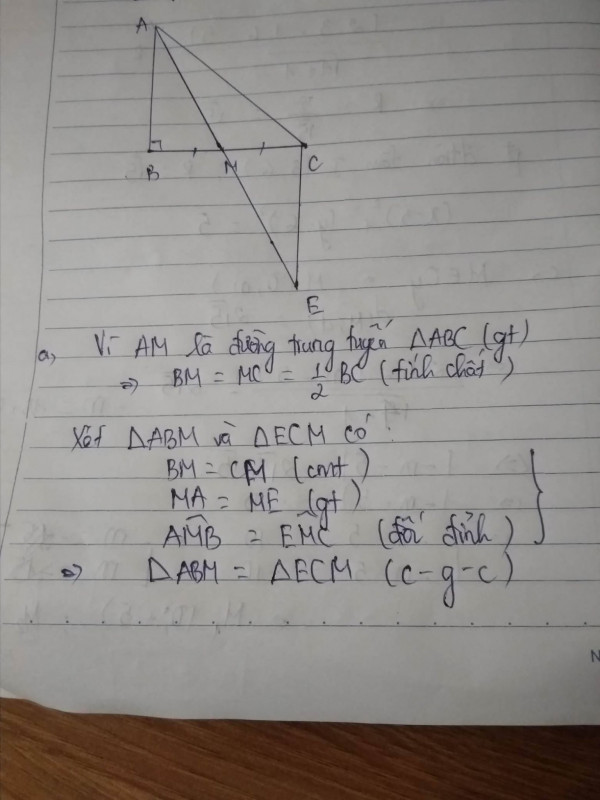 A
B
M
C
E
a, Vì AM là đường trung tuyến ΔABC (gt)
=> BM = MC = 1/2 BC (tính chất)
Xét ΔABM và ΔECM có:
BM = CM (cmt)
MA = ME (gt)
AM̂B = EM̂C (đối đỉnh)
=> ΔABM = ΔECM (c-g-c)
N